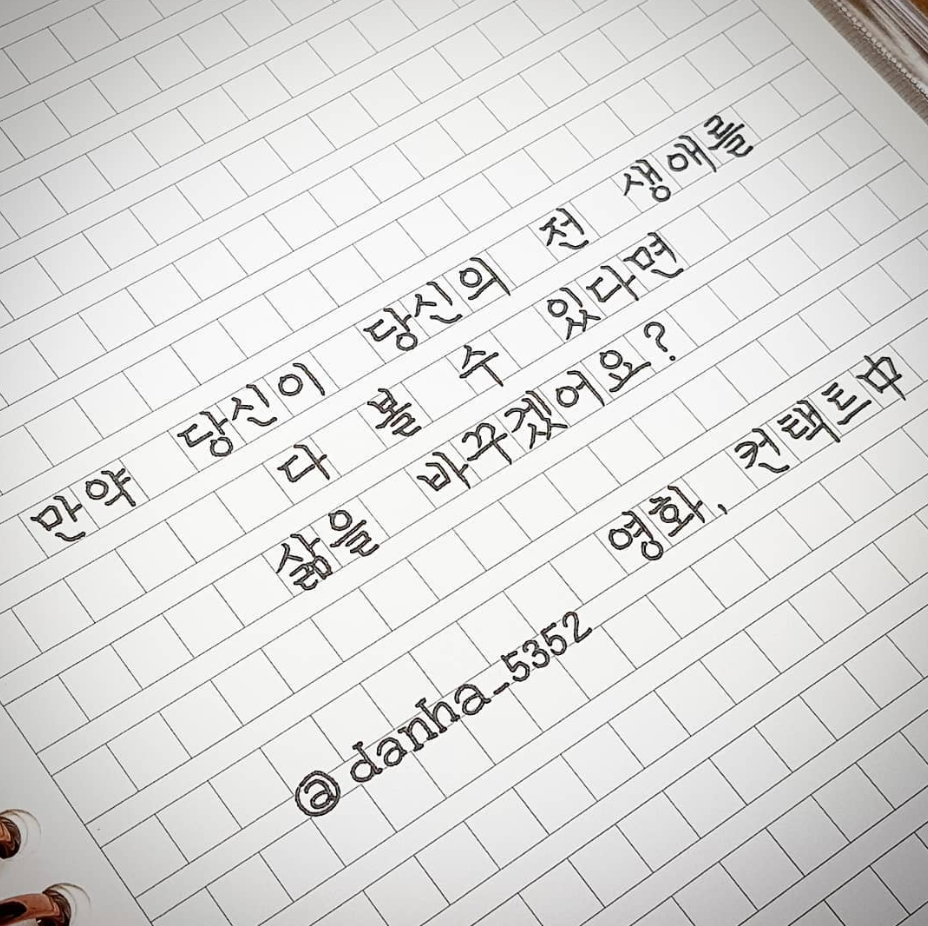 만약 당신이 당신의 전 생애를
다 볼 수 있다면
삶을 바꾸겠어요?
영화, 컨택트中
@danha_5352